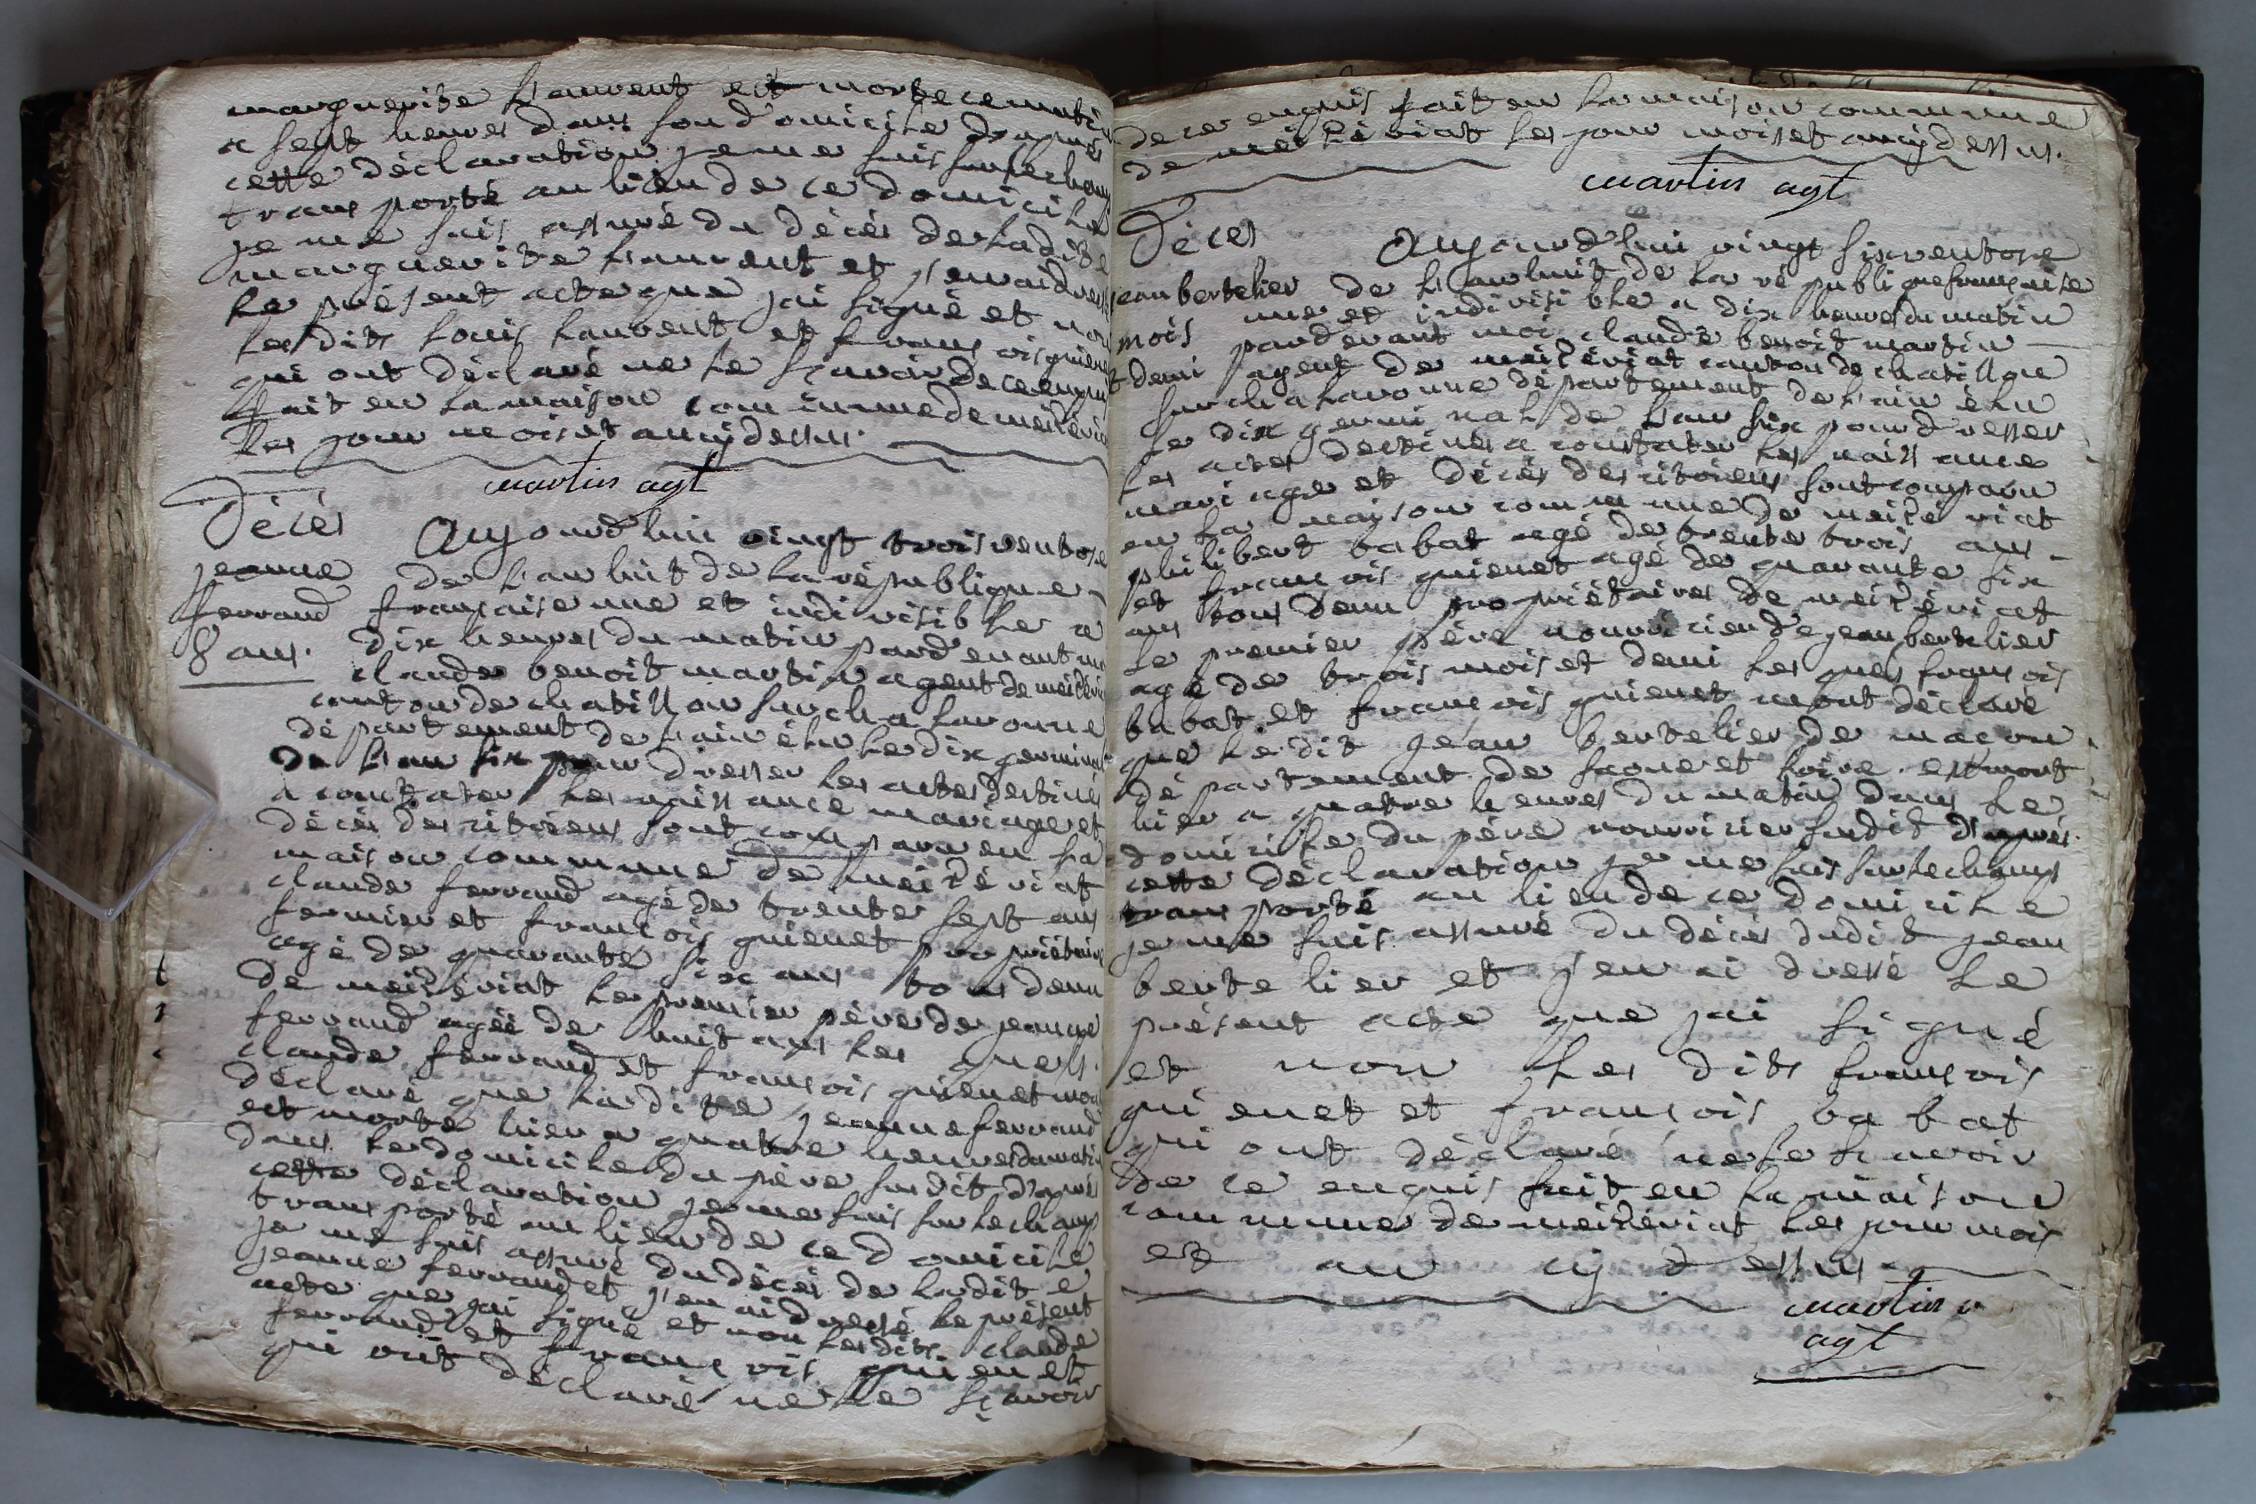 marguerite Laurent est morte ce matin
a sept heures dans son domicile d'apres
cette déclaration je me suis sur le champ
transporté au lieu de ce domicile
je me suis assuré du décés de la dite
marguerite Laurent et j'en ai dressé
le présent acte que jai signé et non
les dits Louis Laurent et francois guienet
qui ont déclaré ne le sçavoir de ce enquis
fait en la maison commune de meizériat
les jour mois et an cÿ dessus.
martin agt
Décés
jeanne
ferrand
8 ans.
Aujourd'hui vingt trois ventose
de L'an huit de la république
française une et indivisible a
dix heures du matin pardevant moi
claude benoit martin agent de meizériat
canton de chatillon sur chalaronne
département de l'ain élu le dix germinal
de L'an six pour dresser les actes destinés
a constater les naissance mariage et
décés des citoiens sont comparu en la
maison commune de meizériat
claude ferrand agé de trente sept ans
fermier et francois guienet propriétaire
agé de quarante six ans tous deux
de meizériat le premier pére de jeanne
ferrand agéé de huit ans les quels
claude ferrand et francois guienet mont
déclaré que la dite jeanne ferrand
est morte hier a quatre heures du matin
dans le domicile du pére susdit d'aprés
cette déclaration je me suis sur le champ
transporté au lieu de ce domicile
je me suis assuré du décés de la dite
jeanne ferrand et j'en ai dressé le présent
acte que jai signé et non les dits claude
ferrand et francois guienet
qui ont déclaré ne le sçavoir
de ce enquis fait en la maison commune
de meizériat les jour mois et an cÿ dessus.
martin agt
Décés
jean bertelier
mois
et demi
Aujourd'hui vingt six ventose
de L'an huit de la république française
une et indivisible a dix heures du matin
pardevant moi claude benoit martin
agent de meizériat canton de chatillon
sur chalaronne département de l'ain élu
le dix germinal de L'an six pour dresser
les actes destinés a constater les naissance
mariage et décés des citoiens sont comparu
en la maison commune de meizériat
philibert babat agé de trente trois ans
et francois guienet agé de quarante six
ans tous deux propriétaires de meizériat
le premier pére nourricier de jean bertelier
agé de trois mois et demi les quels francois
babat et francois guienet mont déclaré
que le dit jean bertelier de macon
département de saone et loire est mort
hier a quatre heures du matin dans le
domicile du pére nourricier susdit d'aprés
cette déclaration je me suis sur le champ
transporté au lieu de ce domicile
je me suis assuré du décés dudit jean
bertelier et j'en ai dressé le
présent acte que jai signé
et non les dits francois
guienet et francois babat
qui ont déclaré ne le sçavoir
de ce enquis fait en la maison
commune de meizériat les jour mois
et an cÿ dessus.
martin
agt